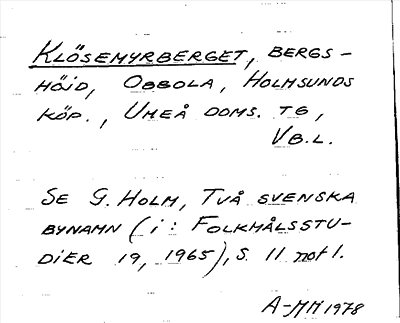 KLÖSEMYRBERGET, BERGS-
HÖJD, OBBOLA, HOLMSUNDS
KÖP., UMEÅ DOMS. TG,
VB.L.
SE G. HOLM, TVÅ SVENSKA
BYNAMN (i: FOLKMÅLSSTU-
DiER 19, 1965), S. 11 not 1.
A-MM 1978